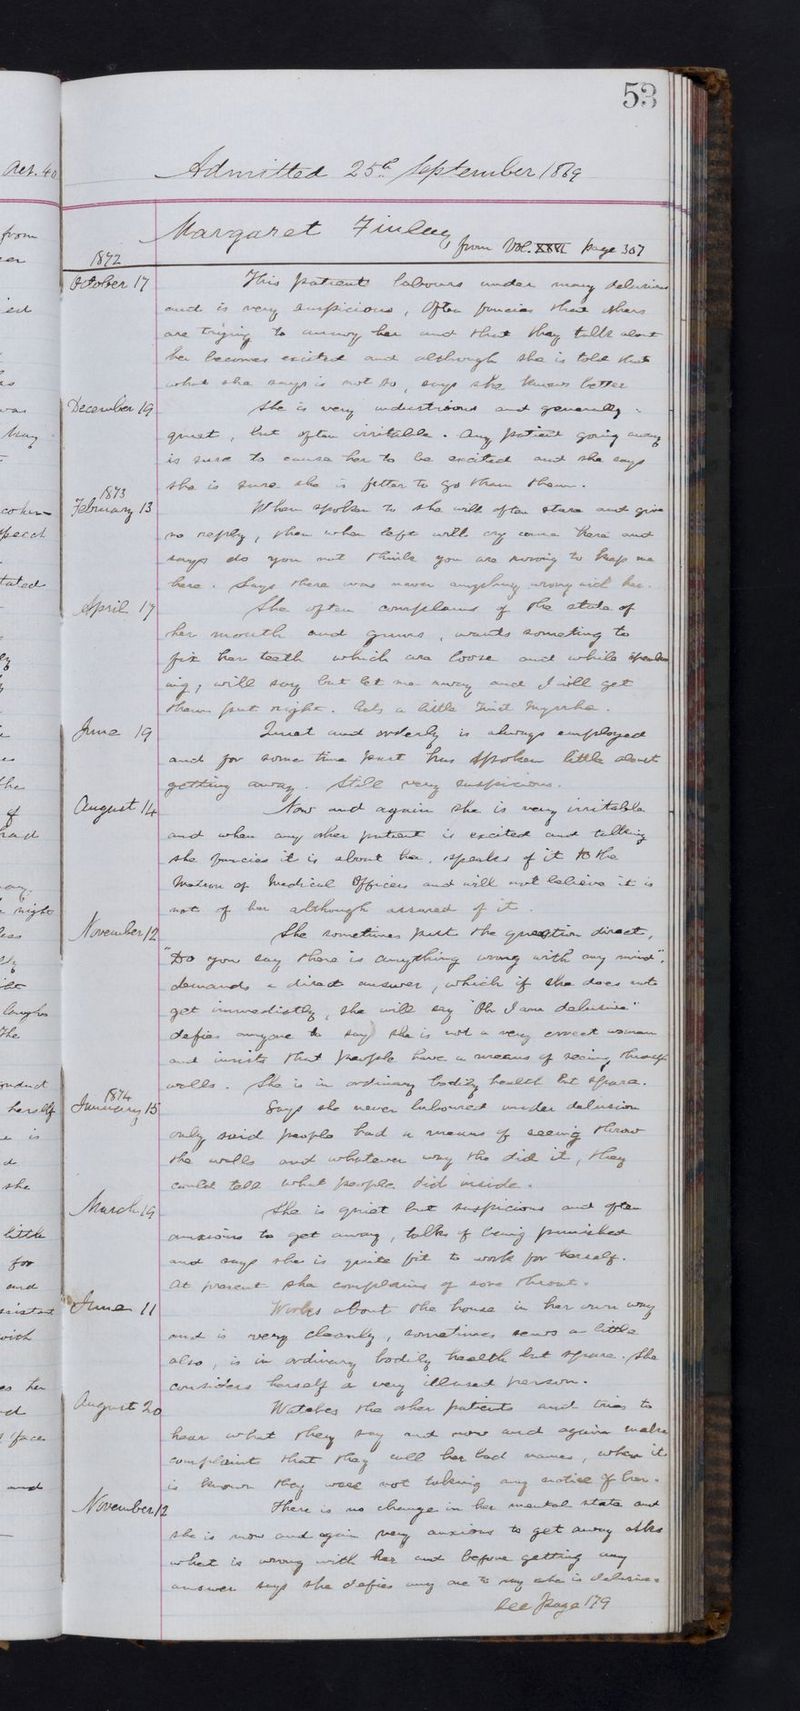 53
Admitted 25th September 1869
Margaret Finlay from Vol. XXVI page 307
1872
October 17 This patient labours under many delusions
and is very suspicious, Often fancies that others
are trying to annoy her and that they talk about
her becomes excited and although she is told that
what she says is not so, says she knows better
December 19 She is very industrious and generally
quiet, but often irritable. Any patient going away
is sure to cause her to be excited and she says
she is sure she is fitter to go than them.
1873
February 13 When spoken to she will often stare and give
no reply, then when left will cry come here and
says do you not think you are wrong to keep me
here. Says there was never anything wrong with her.
April 17 She often complains of the state of
her mouth and gums, wants someting to
fix her teeth which are loose and while speak
ing, will say but let me away and I will get
them put right. Gets a little Tinct Myrrha.
June 19 Quiet and orderly is always employed
and for some time past has spoken little about
getting away. Still very suspicious.
August 14 Now and again she is very irritable
and when any other patient is excited and talking
she fancies it is about her, speaks of it to the
Matron or Medical Officers and will not believe it is
not of her although assured of it.
November 12 She sometimes put the question direct,
"Do you say there is anything wrong with my mind",
demands a direct answer, which if she does not
get immediatly, she will say "Oh I am delusive"
defies anyone to say she is not a very correct woman
and insists that people have a means of seeing through
walls. She is in ordinary bodily health but spare.
1874
January 15 Says she never laboured under delusion
only said people had a means of seeing throw
the walls and whatever way the did it, they
could tell what people did inside.
March 19 She is quiet but suspicious and often
anxious to get away, talks of being punished
and says she is quite fit to work for herself.
At present she complains of sore throat.
June 11 Works about the house in her own way
and is very cleanly, sometimes sews a little
also, is in ordinary bodily health but spare. She
considers herself a very illused person.
August 20 Watches the other patients and tries to
hear what they say and now and again makes
complaint that they call her bad names, when it
is known they were not taking any notice of her.
November 12 There is no change in her mental state and
she is now and again very anxious to get away asks
what is wrong with her and before getting any
answer says she defies any one to say she is delusive.
see page 179